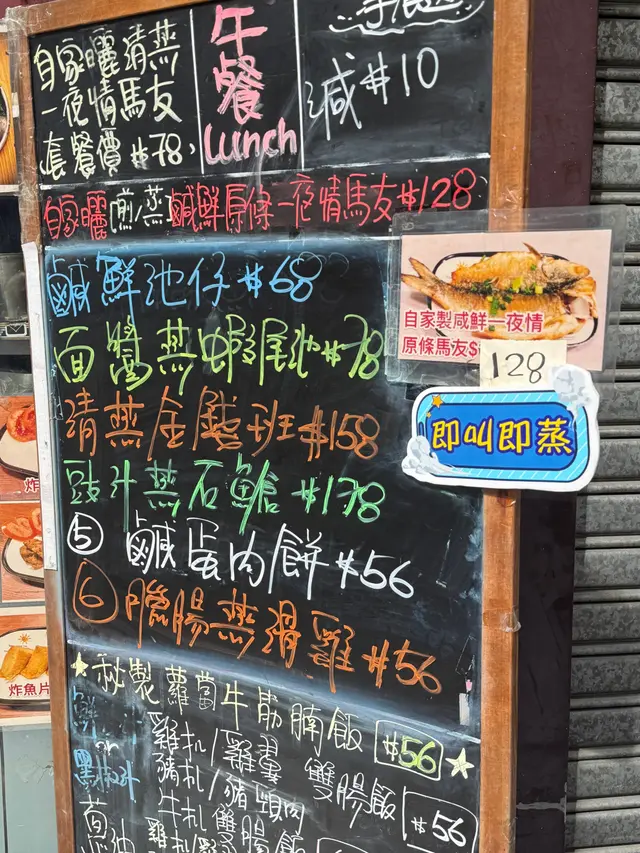 自家曬清蒸
一夜情馬友
套餐價 #78
午餐
Lunch
減 #10
自家曬 煎/蒸 鹹鮮原條一夜情馬友 #128
鹹鮮池仔 #68
面醬蒸蝦尾池 #78
清蒸金錢班 #158
豉汁蒸石鱠 #138
⑤ 鹹蛋肉餅 #56
⑥ 臘腸蒸滑雞 #56
自家製咸鮮一夜情
原條馬友$
128
即叫即蒸
秘製蘿蔔牛筋腩飯 #56
or
黑椒汁
雞扒/雞翼
豬扒/豬頸肉
雙腸飯 #56
牛扒
雙腸飯
炸魚片
炸